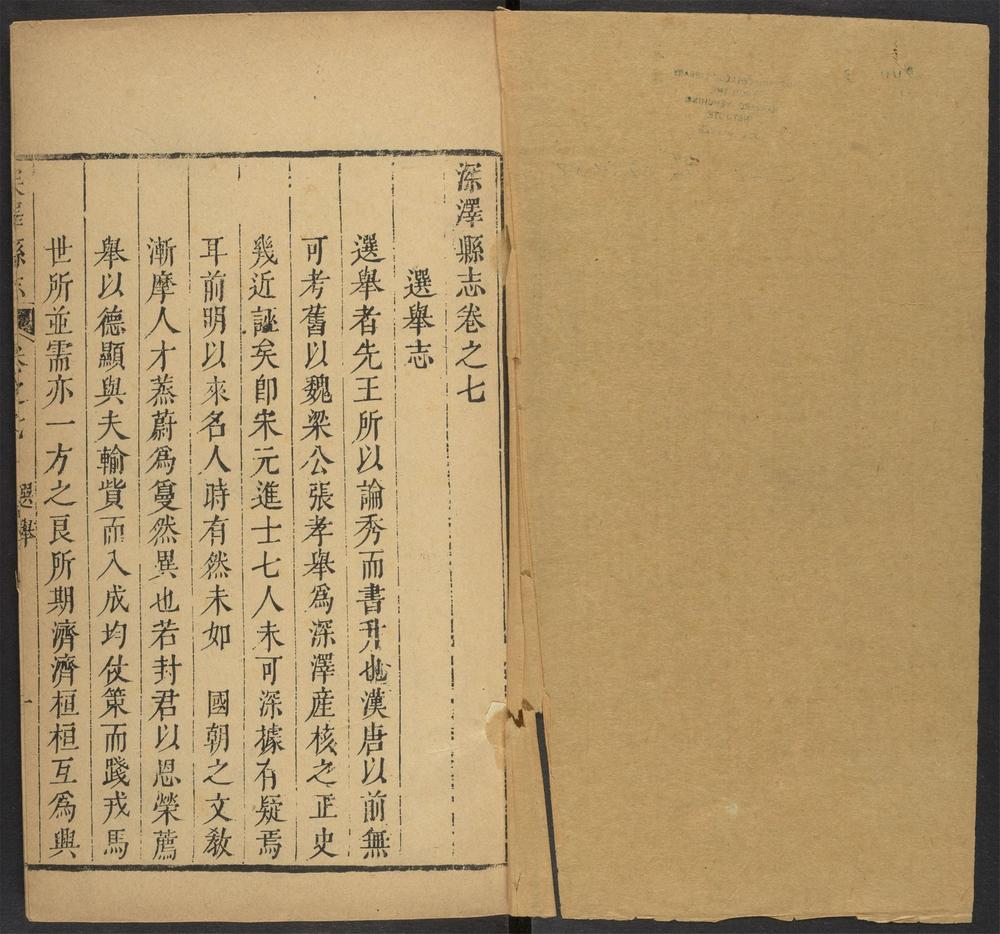 深澤縣志卷之七
選舉志
選舉者先王所以論秀而書升也漢唐以前無
可考舊以魏梁公張孝舉爲深澤産核之正史
幾近誣矣卽宋元進士七人未可深據有疑焉
耳前明以來名人時有然未如　國朝之文敎
漸摩人才蒸蔚爲戞然異也若封君以恩榮薦
舉以德顯與夫輸貲而入成均仗策而踐戎馬
世所並需亦一方之良所期濟濟桓桓互爲興
深澤縣志 卷之七 選舉 一